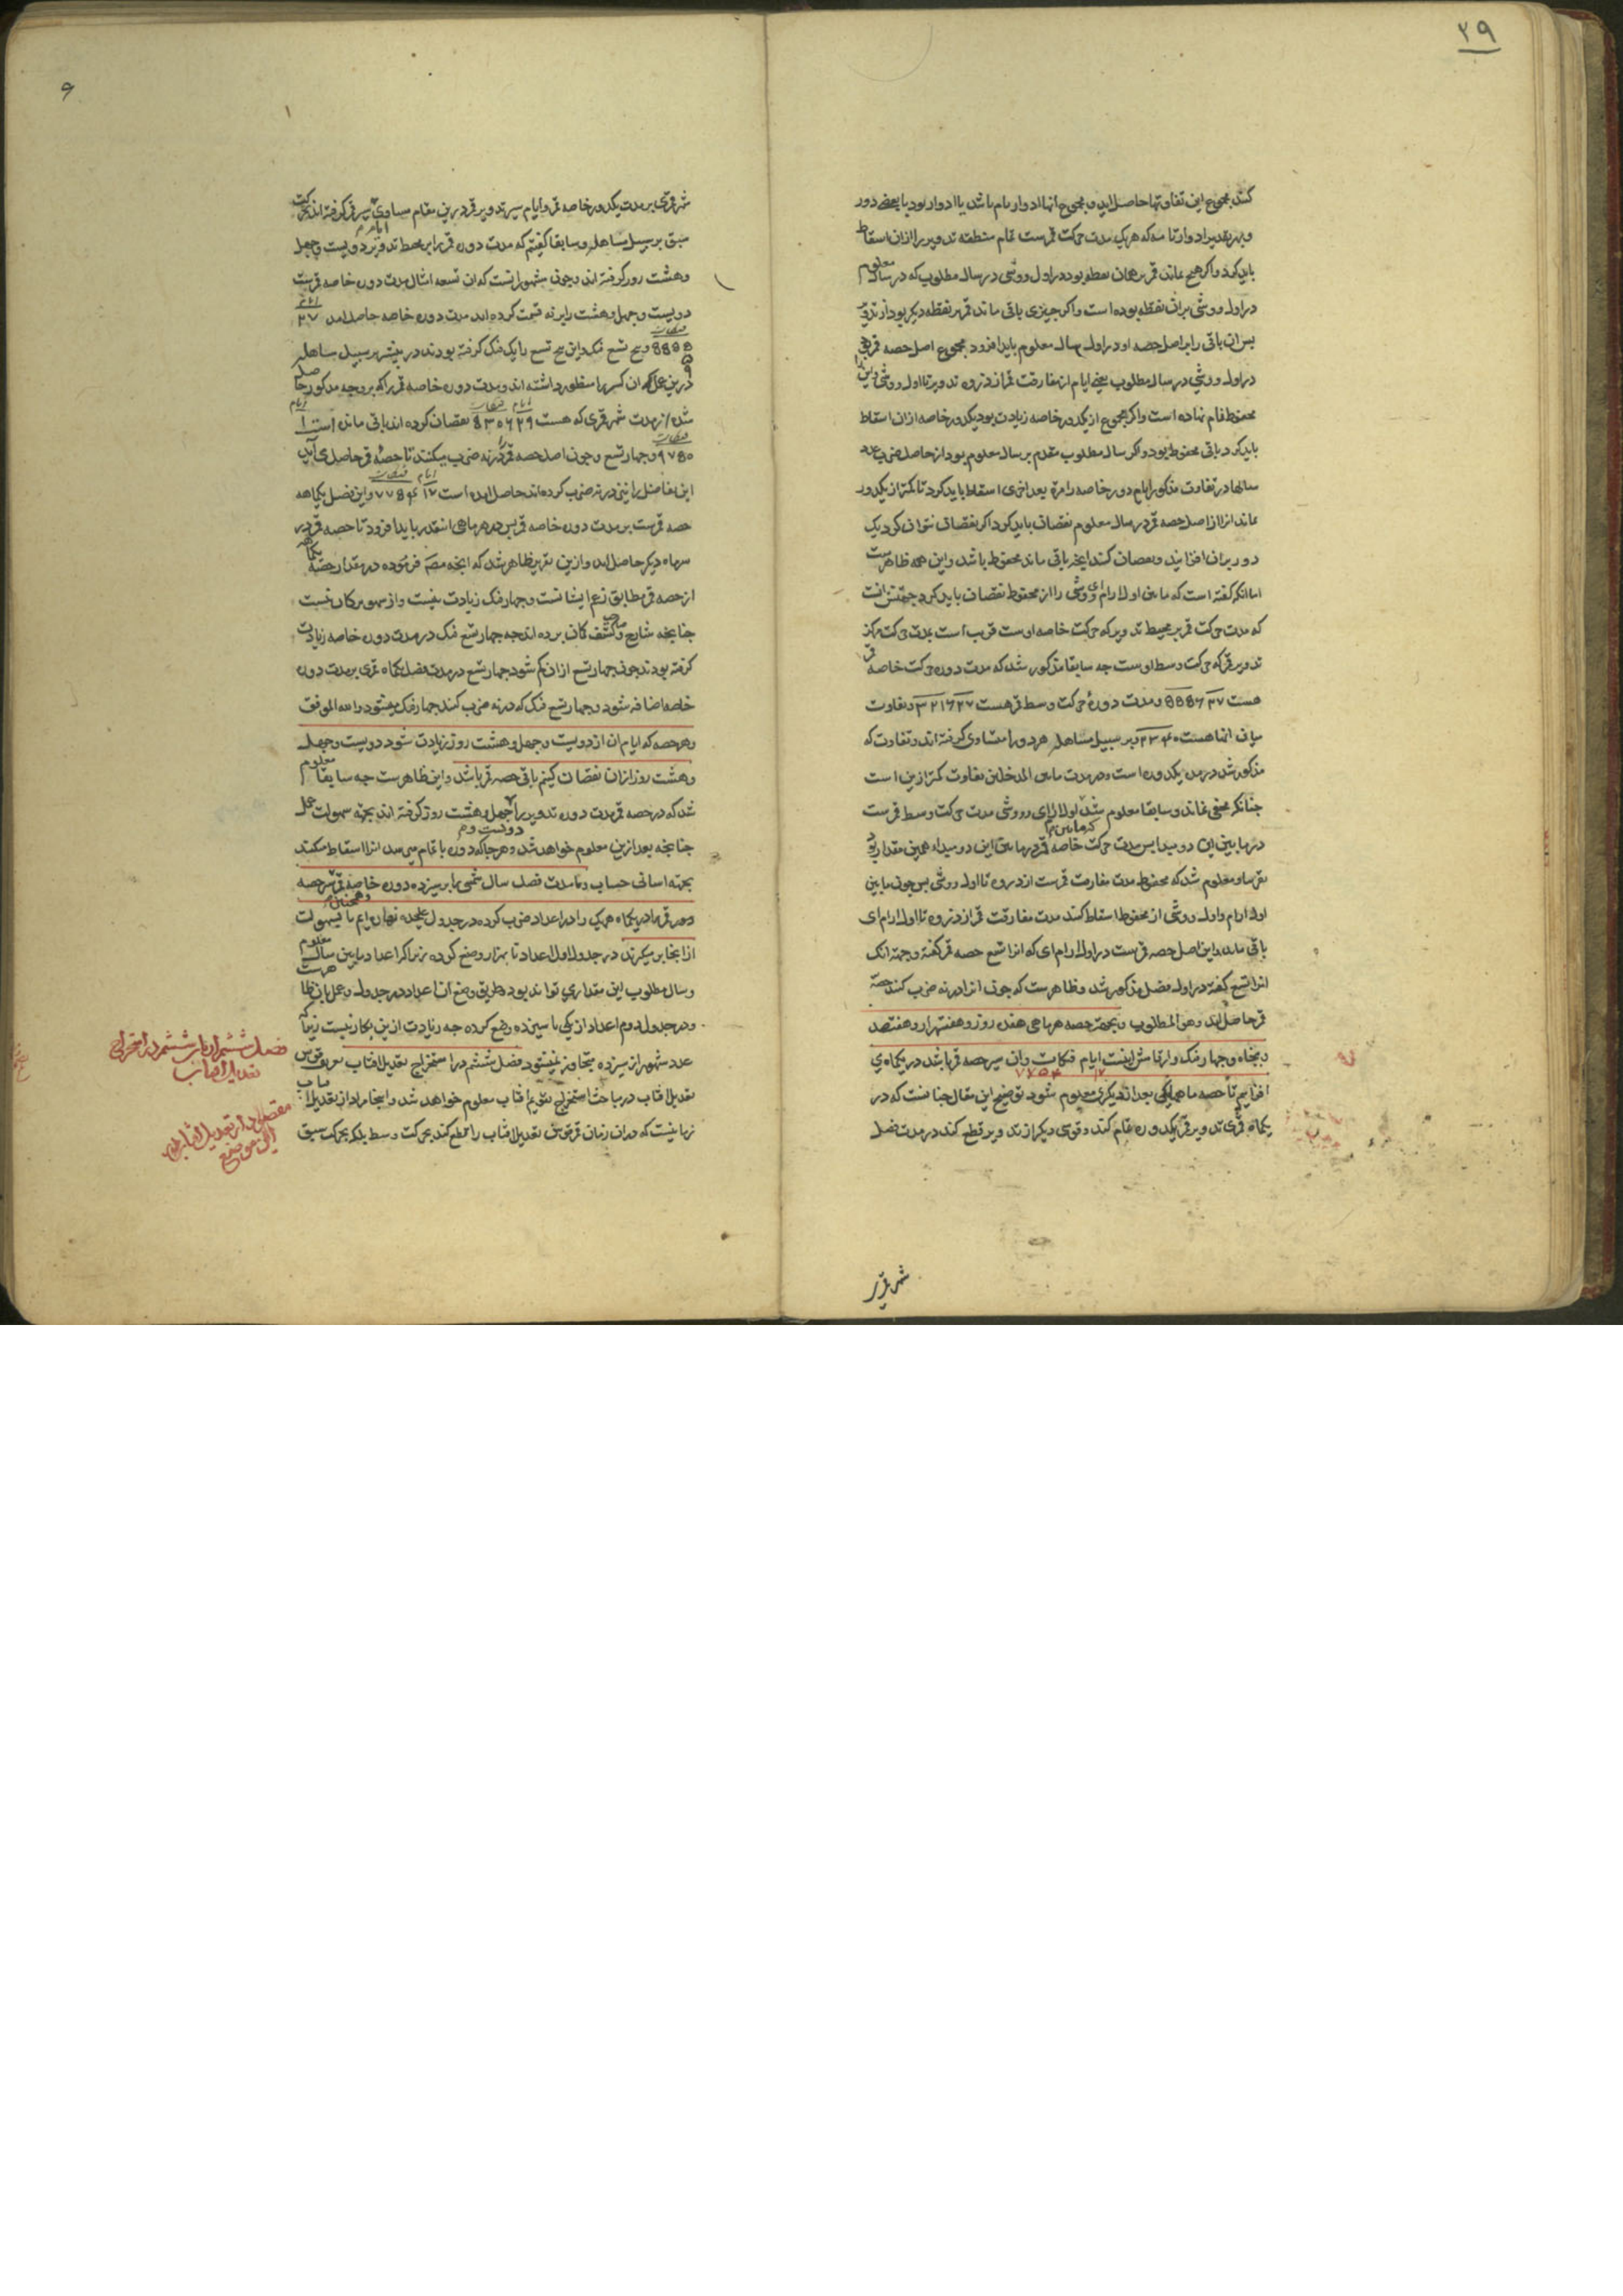 ۲۹
کنند مجموع این تفاوتها حاصل اید و مجموع انها ادوار تام باشد یا ادوار بود با بعضی دور
و بهر تقدیر ادوار تامه که هریک مدت حرکت قمرست تمام منطقه تدویر را ازان اسقاط
باید کرد و اکر هیچ نماند قمر بر همان نقطه بوده در اول ووشی در سال مطلوب که در سال معلوم
در اول ووشی بران نقطه بوده است و اکر چیزی باقی ماند قمر بر نقطه دیکر بود از تدویر
پس ان باقی را بر اصل حصه او در اول سال معلوم باید افزود مجموع اصل حصه قمر
در اول ووشی در سال مطلوب یعنی ایام از مفارقت قمر از ذروه تدویر تا اول ووشی و این را
محفوظ نام نهاده است و اکر مجموع از یکدور خاصه زیادت بود یکدور خاصه ازان اسقاط
باید کرد باقی محفوظ بود و اکر سال مطلوب مقدم بر سال معلوم بود از حاصل ضرب عدد
سالها در تفاوت مذکور ایام دور خاصه را مرة بعد اخری اسقاط باید کرد تا کمتر از یکدور
بماند انرا از اصل حصه قمر در سال معلوم نقصان باید کرد اکر نقصان نتوان کرد یک
دور بران افزایند و نقصان کنند انچه باقی ماند محفوظ باشد و این همه ظاهرست
اما انکه کفته است که ما بین اول ارام ای و ووشی را از محفوظ نقصان باید کرد جهتش انست
که مدت حرکت قمر بر محیط تدویر که حرکت خاصه اوست قریب است بمدت حرکت مرکز
تدویر قمر که حرکت وسط اوست چه سابقا مذکور شد که مدت دوره حرکت خاصه قمر
هست ۲۷ ۵۵۴۶ و مدت دورهٔ حرکت وسط قمر هست ۲۷ ۳۲۱۶ و تفاوت
میان انها هست ۲۳۴۰ و بر سبیل مساهله هر دو را متساوی کرفته اند و تفاوت که
مذکور شد در مدت یکدوره است و در مدت مابین المدخلین تفاوت کمتر ازین است
چنانکه مخفی نماند و سابقا معلوم شد که اول ارام ای و ووشی مدت حرکت وسط قمرست
در مابین این دو مبدا پس مدت حرکت خاصه قمر در مابین این دو مبدا همین مقدار بود
تقریبا و معلوم شد که محفوظ مدت مفارقت قمرست از ذروه تا اول ووشی پس چون مابین
اول ارام و اول ووشی از محفوظ اسقاط کنند مدت مفارقت قمر از ذروه تا اول ارام ای
باقی ماند و این اصل حصه قمرست در اول ارام ای که انرا تسع حصه قمر کفته و جهت انک
انرا تسع کفته در اول فصل مذکور شد و ظاهرست که چون انرا در نه ضرب کنند حصه
قمر حاصل اید و هو المطلوب و بجهت حصه هر ماهی هفده روز و هفتهزار و هفتصد
و پنجاه و چهار فنک و ارقامش اینست ایام ۱۷ فنکات ۷۷۵۴ وان سیر حصه قمر باشد در یکماه ی
افزاییم تا حصه ماهها یکی بعد از دیکری معلوم شود توضیح این مقال چنانست که در
یکماه قمری تدویر قمر یکدوره تمام کند و قوسی دیکر از تدویر قطع کند در مدت فضل
شهر قمری
شهر قمری بر مدت یکدور خاصه قمر و ایام سیر تدویر قمر درین مقام مساوی سیر قمر کرفته اند
سبق بر سبیل مساهله و سابقا کفتیم که مدت دوره قمر را بر محیط تدویر دویست و چهل
وهشت روز کرفته اند و چون مشهور انست که ان تسعه امثال مدت دوره خاصه قمرست
دویست و چهل وهشت را بر نه قسمت کرده اند مدت دوره خاصه حاصل امد ایام ۲۷
فنکات ۵۵۵۵ و پنج تسع فنک و این پنج تسع را یک فنک کرفته بودند در پیشتر بر سبیل مساهله
درین عمل که ان کسر را منظور داشته اند و مدت دوره خاصه قمر را که بروجه مذکور حاصل
شد از مدت شهر قمری که هست ایام ۲۹ فنکات ۵۳۰۶ نقصان کرده اند باقی مانده است ایام ۱
فنکات ۹۷۵۰ و چهار تسع و چون اصل حصه قمر را در نه ضرب میکنند تا حصهٔ قمر حاصل می اید
این تفاضل را نیز در نه ضرب کرده اند حاصل امده است ایام ۱۷ فنکات ۷۷۵۴ و این فضل یکماهه
حصه قمرست بر مدت دوره خاصه قمر پس در هر ماهی انقدر باید افزود تا حصه قمر در
سرماه دیکر حاصل اید و ازین تقریر ظاهر شد که انچه مصنف فرموده در مقدار حصهٔ یکماهه
از حصه قمر مطابق زعم ایشانست و چهار فنک زیادت نیست و از سهو مرکان نیست
چنانچه شارح و صاحب کشف کمان برده اند چه چهار تسع فنک در مدت دوره خاصه زیادت
کرفته بودند چون چهار تسع ازان کم شود چهار تسع در مدت فضل یکماه قمری بر مدت دوره
خاصه اضافه شود و چهار تسع فنک که در نه ضرب کنند چهار فنک میشود والله الموفق
وهر حصه که ایام ان از دویست و چهل و هشت روز زیادت شود دویست و چهل
وهشت روز ازان نقصان کنیم باقی حصه قمر باشد و این ظاهرست چه سابقا معلوم
شد که در حصه قمر مدت دوره تدویر را دویست و چهل و هشت روز کرفته اند بجهة سهولت عمل
چنانچه بعد ازین معلوم خواهد شد و هر جا که دوره با تمام می رسد انرا اسقاط میکنند
بجهة اسانی حساب و ما مدت فضل سال شمسی را بر سیزده دوره خاصه قمر و همچنان سر حصه
دور قمر را در یکماه هریک را در اعداد ضرب کرده در جدول علیحده نهاده ایم تا بسهولت
از انجا بر میکرند در جدول اول اعداد تا بهزار وضع کرده زیرا که اعداد مابین سال معلوم
و سال مطلوب این مقداری تواند بود و طریق وضع ان اعداد در جدول و عمل بان ظاهرست
و در جدول دوم اعداد از یکی تا سیزده وضع کرده چه زیادت ازین بکار نیست زیرا که
عدد شهور از سیزده متجاوز نمیشود فصل ششم در استخراج تعدیل افتاب تعریف قوس
تعدیل افتاب در مباحث استخراج تقویم افتاب معلوم خواهد شد و اینجا مراد از تعدیل افتاب
زمانیست که دران زمان قمر قوس تعدیل افتاب را قطع کند بحرکت وسط بلکه بحرکت سبق
فصل ششم از باب ششم در استخراج
تعدیل افتاب
مقصود از تعدیل افتاب درین
موضع